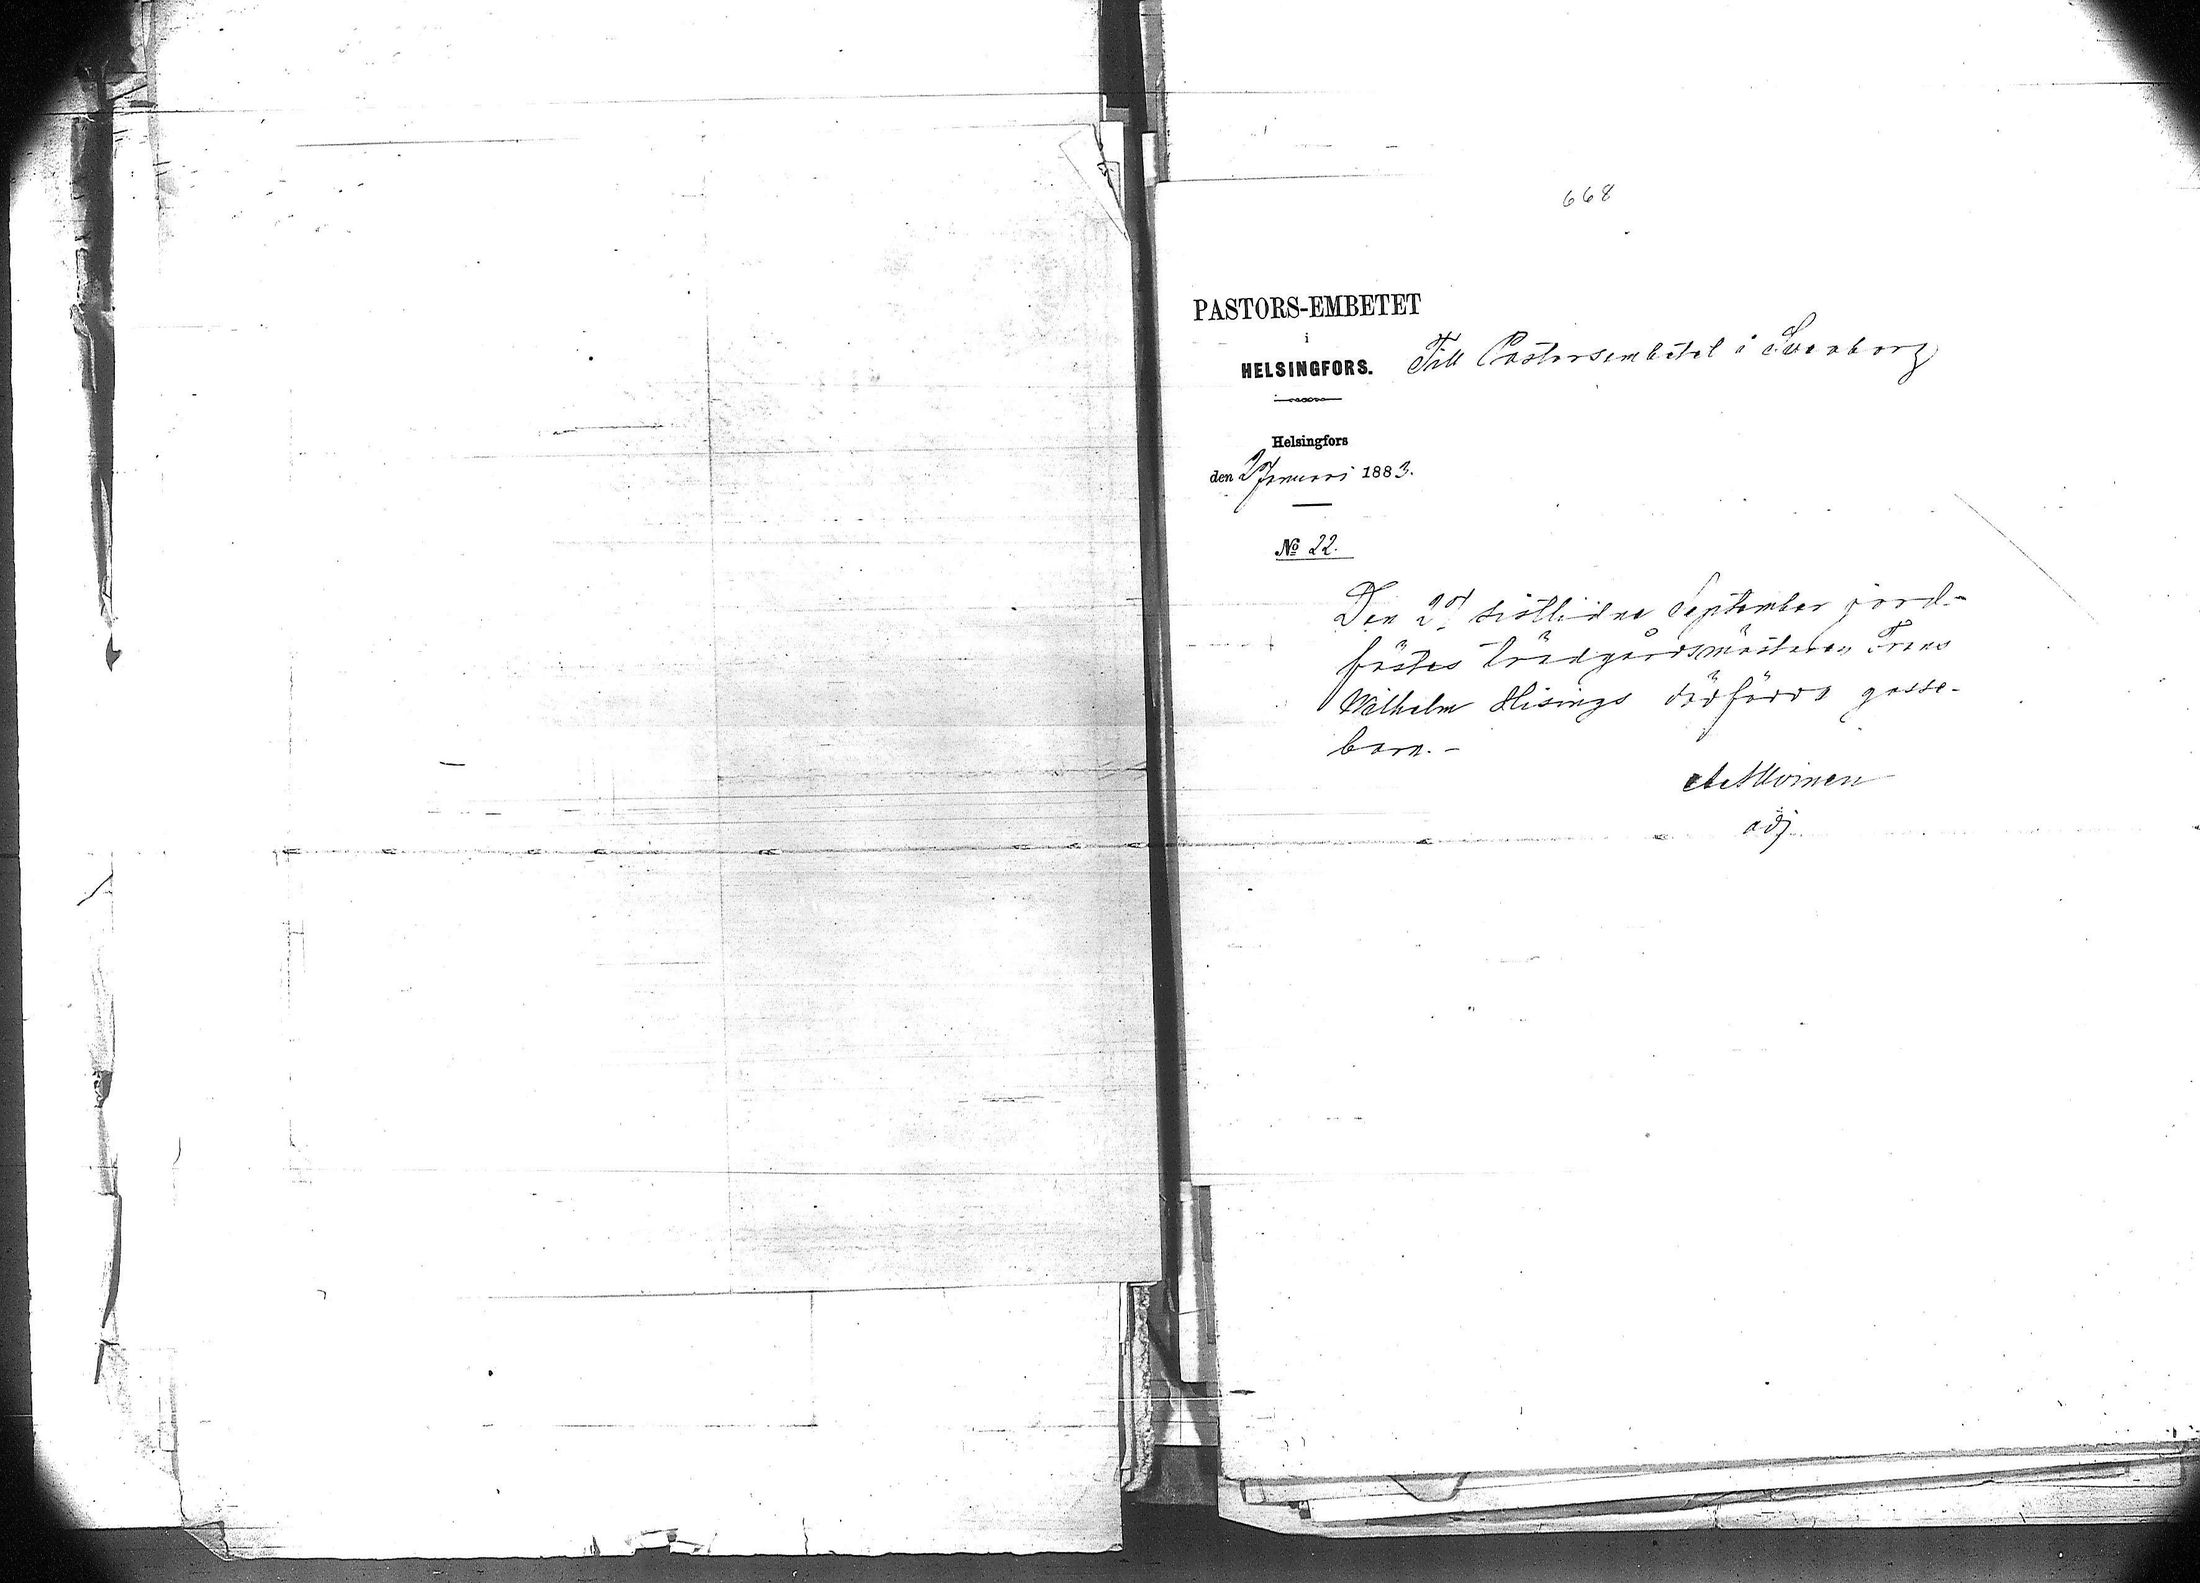 668
PASTORS-EMBETET
i
HELSINGFORS.
Till Pastorsembetet i Sveaborg
Helsingfors
den 2 Januari 1883.
No 22.
Den sistlidne September jord-
fästes trädgårdsmästaren Frans
Wilhelm Hisings dödfödda gosse-
barn.-
adj.